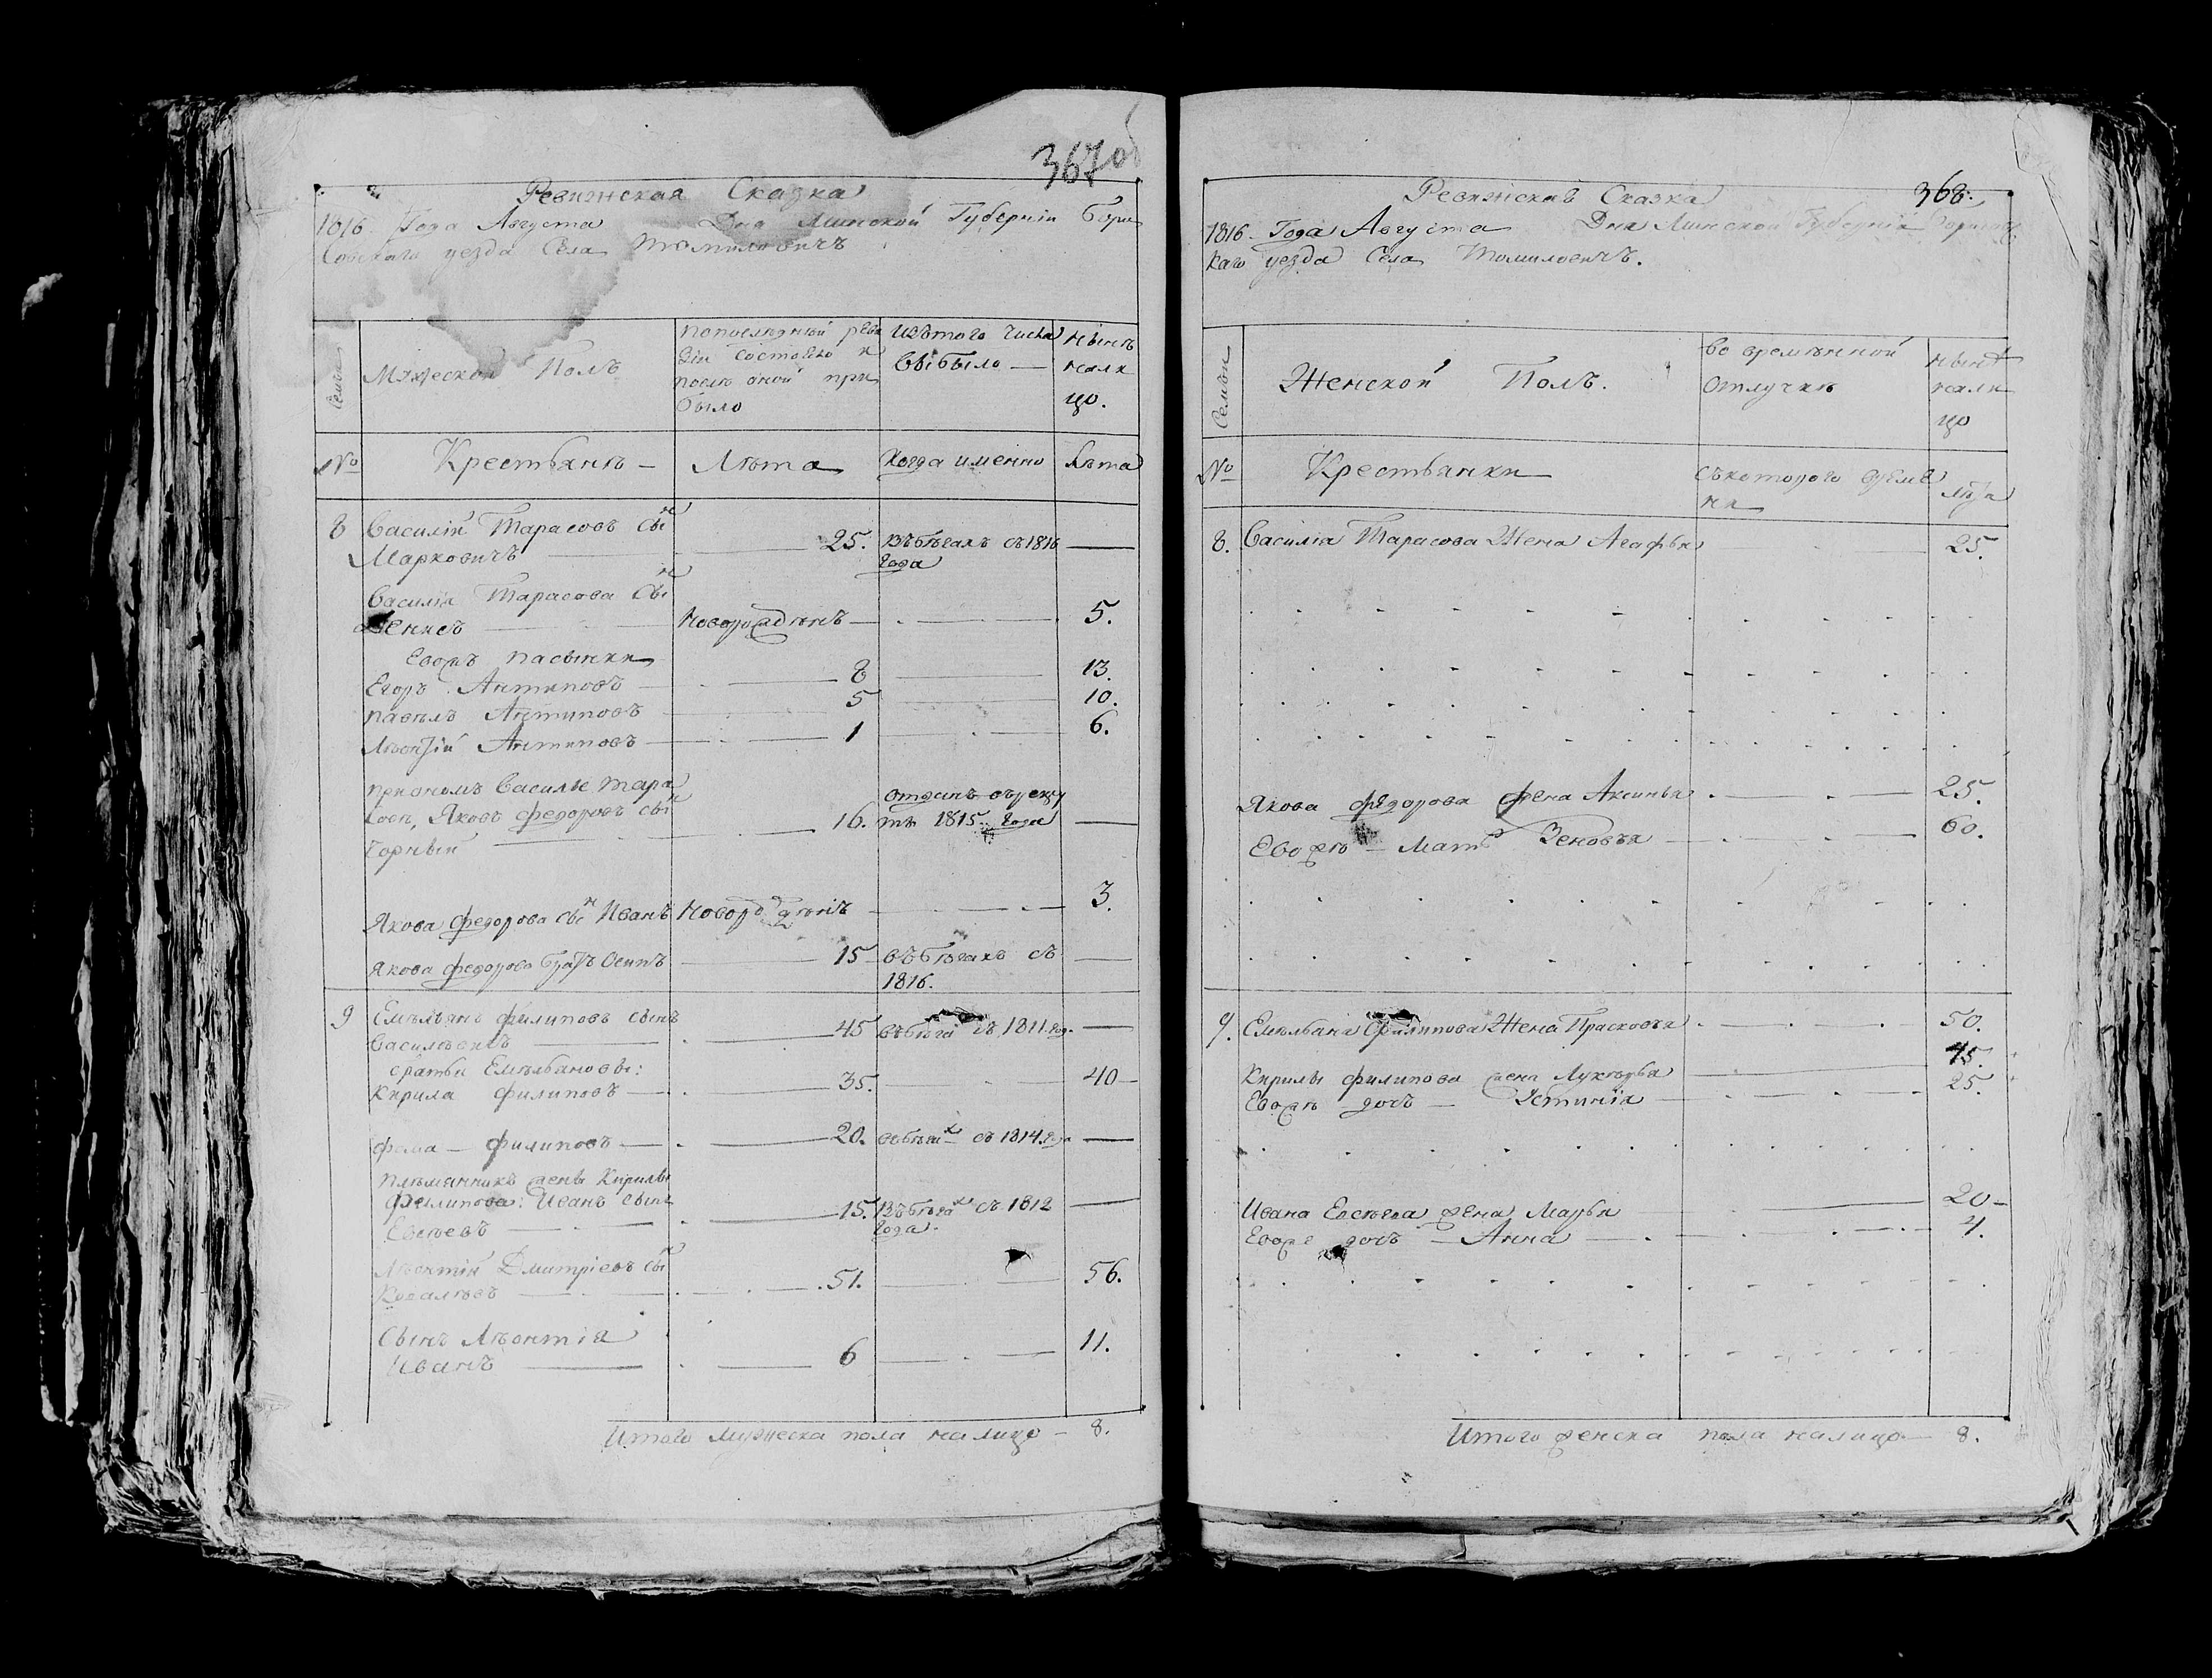 367 об
Ревижская Сказка
1816 Года Августа Дня Минской Губернии Бори
Совскаго уезда Села Томиловичъ
Семьи
Мужеской Полъ
попоследней реви
зіи состояло и
после оной при
было
Изътого числа
выбыло —
Нынѣ
нали
цо.
№
Крестьянѣ —
Лѣта
Когда именно
Лѣта
8 Василій Тарасовъ сынъ
Марковичъ 25. Въбѣгахъ съ 1816 —
Года
Василія Тарасова Сынъ
Денисъ Новорожденъ — 5.
Евожъ пасынки
Егоръ Антиповъ — 8 13.
павелъ Антиповъ 5 10.
Антиповъ — 1 6.
приономъ Василье Тара
совѣ, Яковъ федоровъ сынъ
чорный 16. отданъ врекру
ты 1815 Года —
Якова федорова сынъ Иванъ 3.
Якова федорова братъ Осипъ 15 въбѣгахъ съ —
1816.
9 Емельянъ филиповъ сынъ
Василевичъ 45 вбѣгахъ съ 1811. год. —
братья Емельяновы:
Кирила филиповъ — 35. 40 —
фома — филиповъ — 20. вбѣгахъ съ 1814. года —
племянникъ жены Кирилы
филипова: Иванъ сынъ
Евсеевъ 15. Въбѣгахъ съ 1812 —
Года.
Леонтій Дмитріевъ сынъ
Ковалевъ 51. 56.
Сынъ Леонтія
Иванъ 6 11.
Итого Мужеска пола налицо — 8.
368.
Ревижская Сказка
1816. Года Августа Дня Минской Губерніи Борисовс
каго уезда Села Томиловичъ.
Семьи
Женской Полъ.
во временной
отлучкѣ
Нынѣ
нали
цо
№
Крестьянки
съкоторого време
ни
лѣта
8. Василія Тарасова Жена Агафья 25.
Якова федорова жена Аксинья 25.
Евожъ — Мать Зеновья 60.
9. Емельяна Филипова Жена Прасковья 50.
Кирилы филипова жена Лукерья 45.
Евожъ дочь — Устинія 25.
Ивана Евсеева жена Марья 20 —
Евожъ дочь — Анна 4.
Итого женска пола налицо — 8.